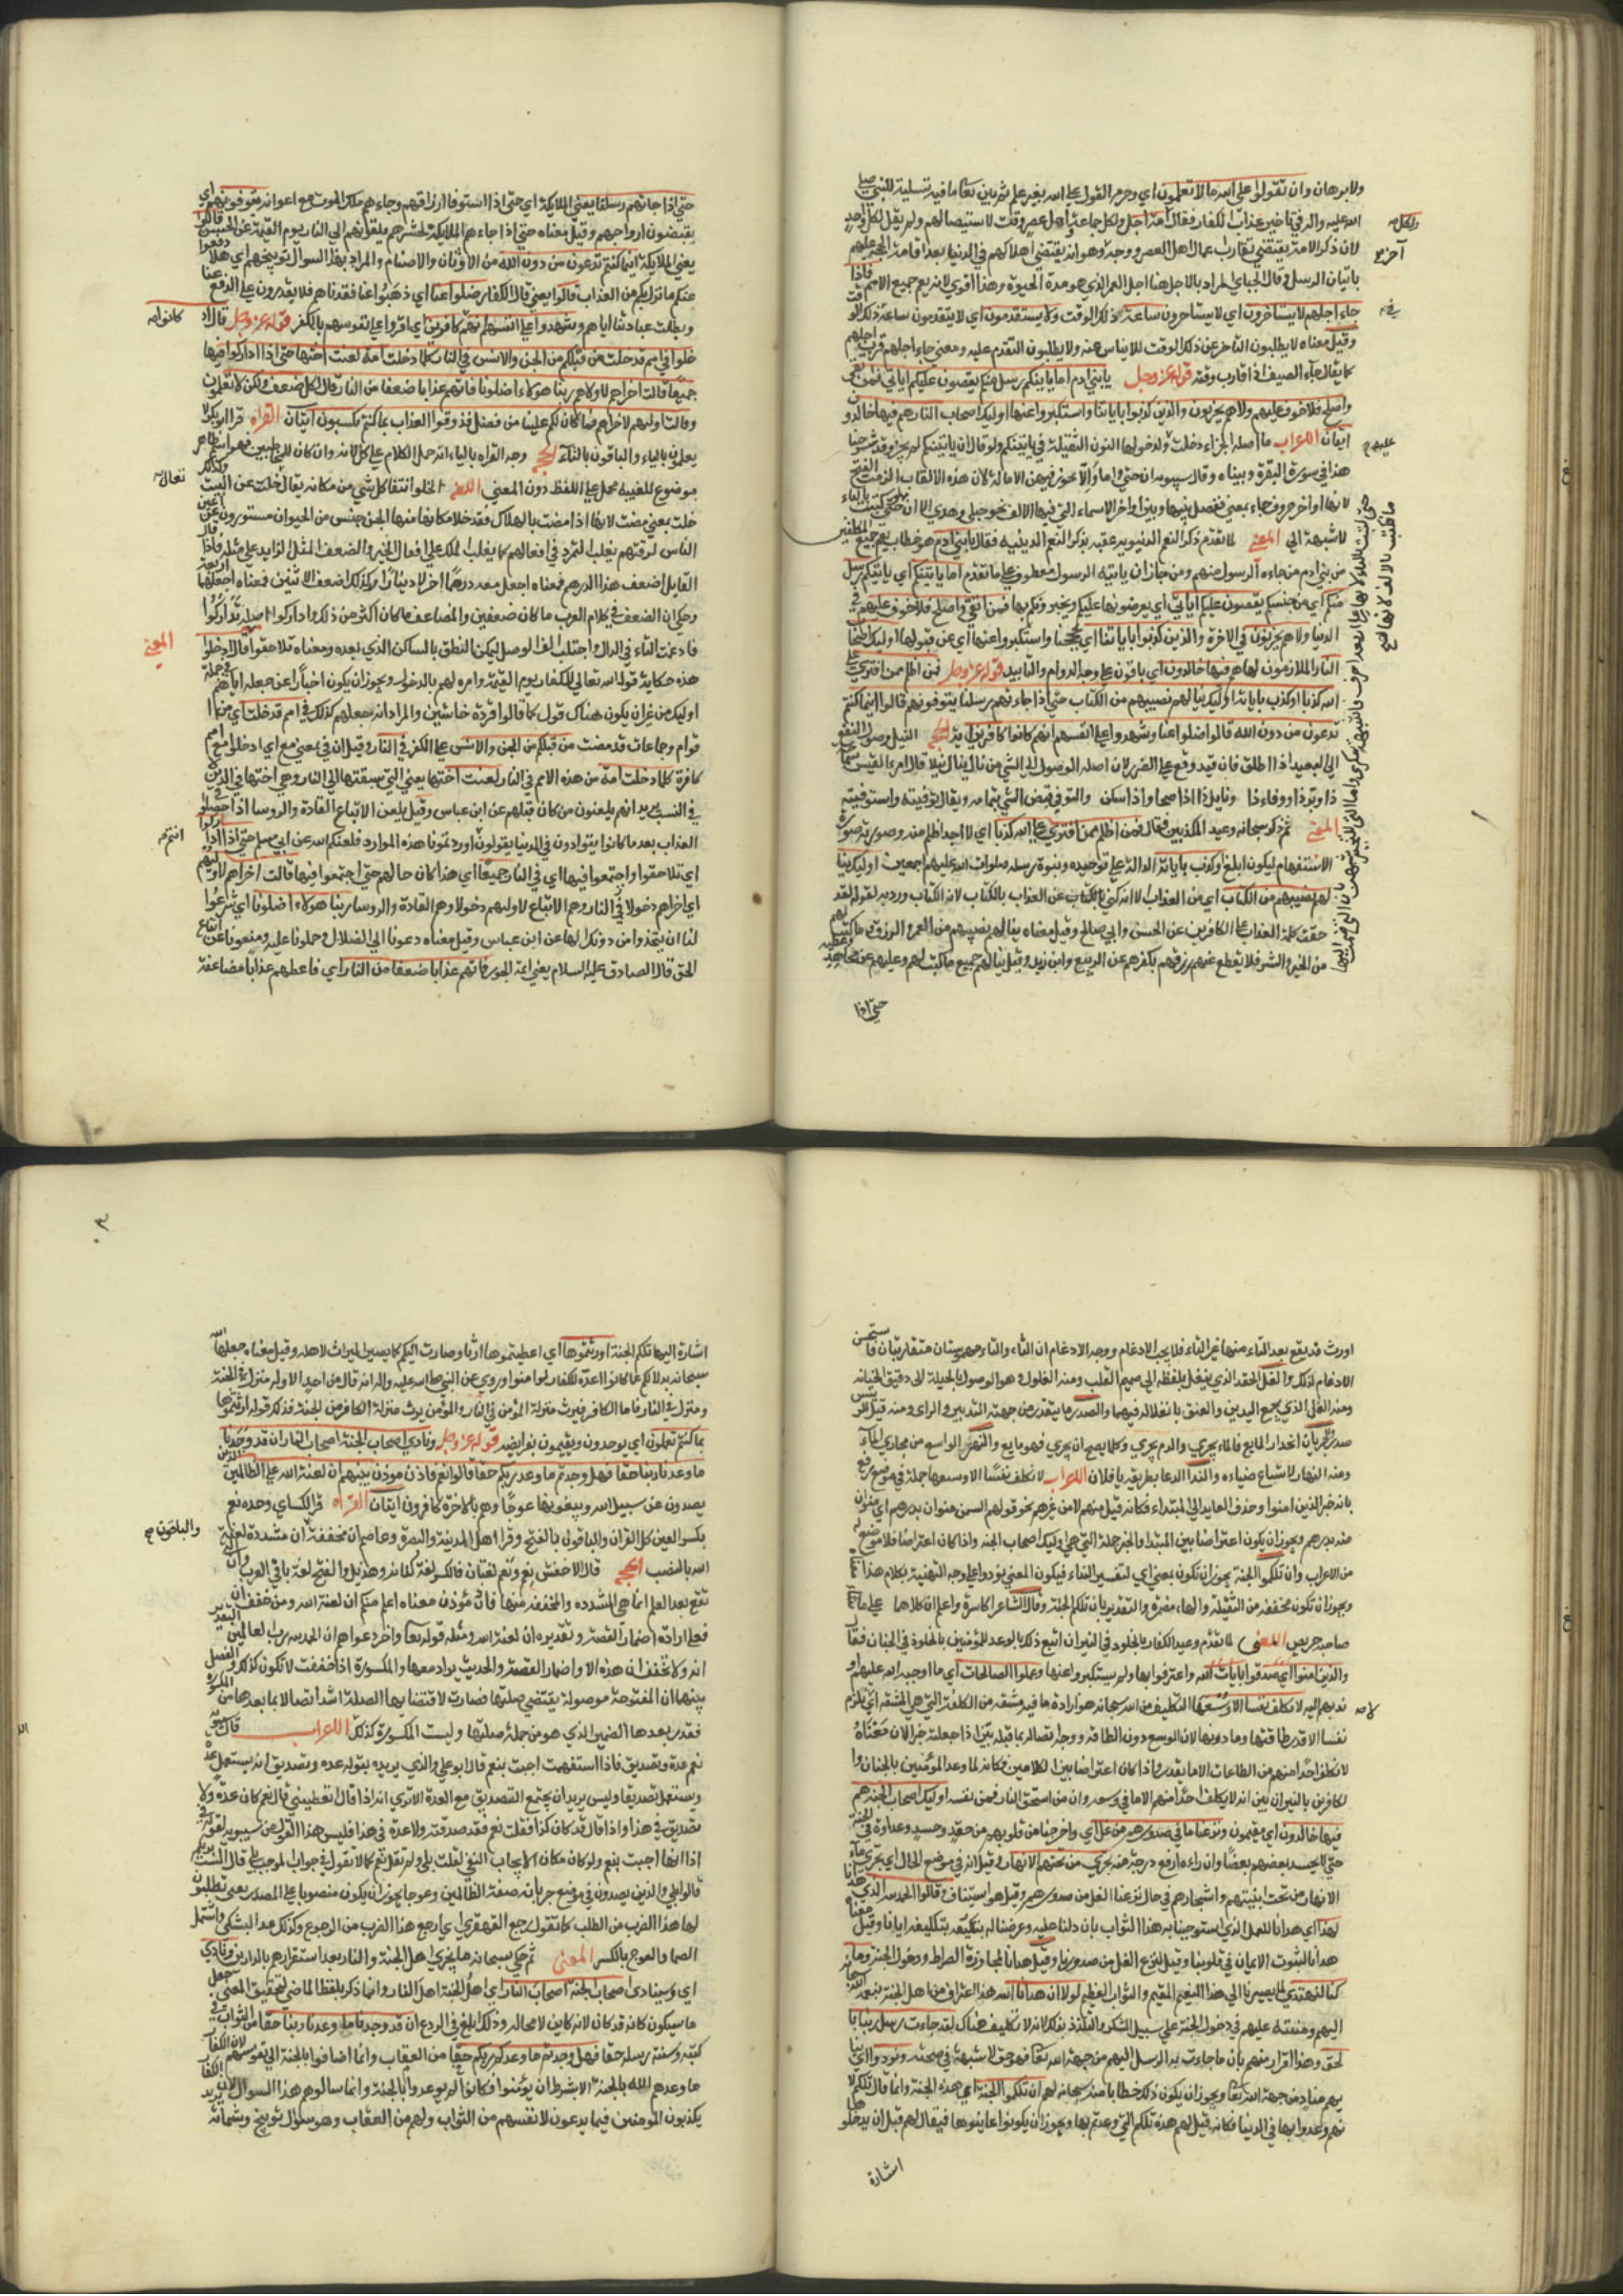 ولا برهان وان تقولوا على الله ما لا تعلمون اي وحرم القول على الله بغير علم ثم بين تعالى ما فيه تسلية للنبي صلى
الله عليه واله في تاخير عذاب الكفار فقال ولكل امة اجل ولكل جماعة واهل عصر وقت لاستيصالهم ولم يقل لكل واحد
لان ذكر الامة يقتضي تقارب اعمار اهل العصر ووجه آخر وهو انه يقتضي اهلاكهم في الدنيا بعد اقامة الحجة عليهم
باتيان الرسل وقال الجبائي المراد بالاجل هنا اجل العمر الذي هو مدة الحيوة وهذا اقوي لانه يعم جميع الامم فاذا
جاء اجلهم لا يستاخرون اي لا يتاخرون ساعة عن ذلك الوقت ولا يستقدمون اي لا يتقدمون ساعة
وقيل معناه لا يطلبون التاخر عن ذلك الوقت للاياس منه ولا يطلبون التقدم عليه ومعنى جاء اجلهم قرب اجلهم
كما يقال جاء الصيف اذا قارب وقته قوله عز وجل يا بني ادم اما ياتينكم رسل منكم يقصون عليكم اياتي فمن اتقى
واصلح فلا خوف عليهم ولا هم يحزنون والذين كذبوا باياتنا واستكبروا عنها اوليك اصحاب النار هم فيها خالدون
ايتان الاعراب اما اصله ان الجزاء دخلت عليه ما ولدخولها النون الثقيلة في ياتينكم ولو قال ان ياتينكم لم يجز وقد شرحنا
هذا في سورة البقرة وبيناه وقال سيبويه ان حتى واما والا لا يجوز فيهن الامالة لان هذه الالفات الزمت الفتح
لانها اواخر حروف جاء بمعنى ففصل بينها وبين اواخر الاسماء التي فيها الالف نحو حبلى وهدى الا ان حتى كتبت بالياء
لاشبهة الى المعنى لما تقدم ذكر النعم الدنيوية عقبه بذكر النعم الدينية فقال يا بني ادم هو خطاب يعم جميع المكلفين
من بني ادم من جاءه الرسول منهم ومن جاز ان ياتيه الرسول معطوف على ما تقدم اما ياتينكم اي ان ياتيكم رسل
منكم اي من جنسكم يقصون عليكم اياتي اي يعرضونها عليكم ويخبرونكم بها فمن اتقى واصلح فلا خوف عليهم في
الدنيا ولا هم يحزنون في الاخرة والذين كذبوا باياتنا اي بحججنا واستكبروا عنها اي عن قبولها اوليك اصحاب
النار الملازمون لها هم فيها خالدون اي باقون على وجه الدوام والتابيد قوله عز وجل فمن اظلم ممن افترى على
الله كذبا او كذب باياته اوليك ينالهم نصيبهم من الكتاب حتى اذا جاءتهم رسلنا يتوفونهم قالوا اينما كنتم
تدعون من دون الله قالوا ضلوا عنا وشهدوا على انفسهم انهم كانوا كافرين
الى البعيد اذا اطلق فان قيد وقع على الضرر لان اصله الوصول الى الشي من نال ينال نيلا قال امرء القيس
والتوفي قبض الشي بتمامه ويقال توفيته واستوفيته
المعنى ثم ذكر سبحانه وعيد المكذبين فقال فمن اظلم ممن افترى على الله كذبا اي لا احد اظلم منه وصورته صورة
الاستفهام ليكون ابلغ او كذب باياته الدالة على توحيده ونبوة رسله صلوات الله عليهم اجمعين اوليك
ينالهم نصيبهم من الكتاب اي من العذاب الا انه كنى بالكتاب عن العذاب لان الكتاب ورد به لقوله لقد
حقت كلمة العذاب على الكافرين عن الحسن وابي صالح وقيل معناه ينالهم نصيبهم من العمر والرزق وما كتب لهم
من الخير والشر فلا يقطع عنهم رزقهم بكفرهم عن الربيع وابن زيد وقيل ينالهم جميع ما كتب لهم وعليهم عن مجاهد
حتى اذا
حتى اذا جاءتهم رسلنا يعني الملايكة اي حتى اذا استوفوا ارزاقهم وجاءهم ملك الموت مع اعوانه يتوفونهم اي
يقبضون ارواحهم وقيل معناه حتى اذا جاءهم الملايكة لحشرهم يتوفونهم الى النار يوم القيمة عن الحسن قالوا
يعني الملايكة اينما كنتم تدعون من دون الله من الاوثان والاصنام والمراد بهذا السوال توبيخهم اي هلا دفعوا
عنكم ما نزل بكم من العذاب قالوا يعني قال الكفار ضلوا عنا اي ذهبوا عنا فقدناهم فلا يقدرون على الدفع عنا
وبطلت عبادتنا اياهم وشهدوا على انفسهم انهم كانوا كافرين اي اقروا على نفوسهم بالكفر قوله عز وجل قال اد
خلوا في امم قد خلت من قبلكم من الجن والانس في النار كلما دخلت امة لعنت اختها حتى اذا اداركوا فيها
جميعا قالت اخراهم لاولاهم ربنا هؤلاء اضلونا فاتهم عذابا ضعفا من النار قال لكل ضعف ولكن لا تعلمون
وقالت اولهم لاخراهم فما كان لكم علينا من فضل فذوقوا العذاب بما كنتم تكسبون ايتان القراءة قرا ابو بكر لا
يعلمون بالياء والباقون بالتاء الحجة وجه القراة بالياء انه حمل الكلام على كل لانه وان كان للمخاطبين فهو اسم ظاهر
موضوع للغيبة فحمل على اللفظ دون المعنى اللغة الخلو انتقال الشي من مكانه يقال خلت عن البيت
خلت بمعنى مضت لانها اذا مضت بالهلاك فقد خلا مكانها منها الجن جنس من الحيوان مستورون عن اعين
الناس لرقتهم يغلب التمرد في افعالهم كما يغلب الملك على افعال الخير والضعف المثل الزايد على مثله فاذا قال
القايل اضعف هذا الدرهم فمعناه اجعل معه درهما اخر لا دينارا وكذلك اضعف الاثنين فمعناه اجعلها اربعة
وحكي ان الضعف في كلام العرب ما كان ضعفين والمضاعف ما كان اكثر من ذلك واداركوا اصله تداركوا
فادغمت التاء في الدال واجتلبت الف الوصل ليمكن النطق بالساكن الذي بعده ومعناه تلاحقوا قال ادخلوا المعنى
هذه حكاية قول الله تعالى للكفار يوم القيمة وامره لهم بالدخول ويجوز ان يكون اخبارا عن جعله اياهم في جملة
اوليك من غير ان يكون هناك قول كما قالوا قردة خاسئين والمراد انه جعلهم كذلك في امم قد خلت اي من ا
قوام وجماعات قد مضت من قبلكم من الجن والانس على الكفر في النار وقيل ان في بمعنى مع اي ادخلوا مع امم
كافرة كلما دخلت امة من هذه الامم في النار لعنت اختها يعني التي سبقتها الى النار وهي اختها في الدين لا
في النسب يريد انهم يلعنون من كان قبلهم عن ابن عباس وقيل يلعن الاتباع القادة والروسا اذا حصلوا في
العذاب بعد ما كانوا يتوادون في الدنيا يقولون انتم اوردتمونا هذه الموارد فلعنكم الله عن ابي مسلم حتى اذا اداركوا
اي تلاحقوا واجتمعوا فيها اي في النار جميعا اي هذا كان حالهم حتى اجتمعوا فيها قالت اخراهم لاوليهم
اي اخراهم دخولا في النار وهم الاتباع لاوليهم دخولا وهم القادة والروسا ربنا هؤلاء اضلونا اي شرعوا
لنا ان نتخذ من دونك الها عن ابن عباس وقيل معناه دعونا الى الضلال وحملونا عليه ومنعونا عن اتباع
الحق قال الصادق عليه السلام يعني ائمة الجور فاتهم عذابا ضعفا من النار اي فاعطهم عذابا مضاعفة
اورث قد يقع بعد التاء منها غير التاء فلا يجب الادغام ووجه الادغام ان الثاء والتاء مهموستان متقاربتان فا ستحسن
الادغام لذلك والغل الحقد الذي ينغل بلطفه الى صميم القلب ومنه الغلول وهو الوصول بالحيلة الى دقيق الخيانة
ومنه الغل الذي يجمع اليدين والعنق بانغلاله فيهما والصدر ما يتصدر من جهته التدبير والراى ومنه قيل للرييس
صدر والجريان انحدار المايع فالماء يجري والدم يجري وكلما يصح ان يجري فهو مايع والنهر الواسع من مجاري الماء
ومنه النهار لاتساع ضياءه والنداء الدعا بطريقة يا فلان الاعراب لا نكلف نفسا الا وسعها جملة في موضع رفع
بانه خبر الذين امنوا وحذف العايد الى المبتداء فكانه قيل منهم لا من غيرهم نحو قولهم السمن منوان بدرهم اي منوان
منه بدرهم ويجوز ان يكون اعتراضا بين المبتدا والخبر جملة التي هي اوليك اصحاب الجنة واذا كان اعتراضا فلا موضع له
من الاعراب وان تلكم الجنة يجوز ان تكون بمعنى اي لتفسير النداء فيكون المعنى نودوا على وجه التهنية بكلام هذا
ويجوز ان تكون مخففة من الثقيلة والهاء مضمرة والتقدير بانه تلكم الجنة وقال الشاعر اكاشره واعلم ان كلاهما على ما
صاحبه حريص المعنى لما تقدم وعيد الكفار بالخلود في النيران اتبع ذلك بالوعد للمؤمنين بالخلود في الجنان فقال
والذين امنوا اي صدقوا بايات الله واعترفوا بها ولم يستكبروا عنها وعملوا الصالحات اي ما اوجبه الله عليهم او
ندبهم اليه لا نكلف نفسا الا وسعها التكليف من الله سبحانه هو ارادة ما فيه مشقة من الكلفة التي هي المشقة اي لا نلزم
نفسا الا قدر طاقتها وما دونها لان الوسع دون الطاقة ووجه اتصاله بما قبله بين اذا جعلته خبرا لان معناه
لا نكلف احدا منهم من الطاعات الا ما يقدر واذا كان اعتراضا بين الكلامين فكانه لما وعد المؤمنين بالجنان وا
لكافرين بالنيران بين انه لا يكلف احدا منهم الا ما في وسعه وان من استحق النار فمن نفسه اوليك اصحاب الجنة هم
فيها خالدون اي مقيمون ونزعنا ما في صدورهم من غل اي واخرجنا من قلوبهم من حقد وحسد وعداوة في الجنة
حتى لا يحسد بعضهم بعضا وان راءه ارفع درجة منه يجري من تحتهم الانهار وقيل انه في موضع الحال اي يجري ماء
الانهار من تحت ابنيتهم واشجارهم في حال نزعنا الغل من صدورهم وقيل هو استيناف وقالوا الحمد لله الذي هدانا
لهذا اي هدانا للعمل الذي استوجبنا به هذا الثواب بان دلنا عليه وعرضنا له بتكليفه ايانا وقيل معناه
هدانا لثبوت الايمان في قلوبنا وقيل لنزع الغل من صدورنا وقيل هدانا لمجاوزة الصراط ودخول الجنة وما
كنا لنهتدي لما يصيرنا الى هذا النعيم المقيم والثواب العظيم لولا ان هدانا الله هذا اعتراف من اهل الجنة بنعمة الله
اليهم ومنته عليهم في دخول الجنة على سبيل الشكر والتلذذ بذلك لانه لا تكليف هناك لقد جاءت رسل ربنا با
لحق وهذا اقرار منهم بان ما جاءت به الرسل اليهم من جهة الله تعالى فهو حق لا شبهة في صحته ونودوا اي
يهم مناد من جهة الله تعالى ويجوز ان يكون ذلك خطابا منه سبحانه لهم ان تلكم الجنة اي هذه الجنة وانما قال تلكم لا
نهم وعدوا بها في الدنيا فكانه قيل لهم هذه تلكم التي وعدتم بها ويجوز ان يكونوا عاينوها فيقال لهم قبل ان يدخلوها
اشارة
٣٠
اشارة اليها تلكم الجنة اورثتموها اي اعطيتموها ارثا وصارت اليكم كما يصير الميراث لاهله وقيل معناه جعلها الله
سبحانه بدلا لكم عما كانوا اعده للكفار لو امنوا وروي عن النبي صلى الله عليه واله انه قال ما من احد الا وله منزل في الجنة
ومنزل في النار فاما الكافر فيرث منزلة المؤمن في النار والمؤمن يرث منزلة الكافر من الجنة فذلك قوله اورثتموها
بما كنتم تعملون اي يوحدون ويقيمون بفرايضه قوله عز وجل ونادى اصحاب الجنة اصحاب النار ان قد وجدنا
ما وعدنا ربنا حقا فهل وجدتم ما وعد ربكم حقا قالوا نعم فاذن مؤذن بينهم ان لعنة الله على الظالمين الذين
يصدون عن سبيل الله ويبغونها عوجا وهم بالاخرة كافرون ايتان القراءة قرا الكسائي وحده نعم
بكسر العين كل القران والباقون بالفتح وقرا اهل المدينة والبصرة وعاصم ان مخففة والباقون ان مشددة لعنة
الله بالنصب الحجة قال الاخفش نعم ونعم لغتان فالكسر لغة كنانة وهذيل والفتح لغة باقي العرب وان التي
تقع بعد العلم انما هي المشددة والمخففة منها فاذن مؤذن معناه اعلم معلم ان لعنة الله ومن خفف ان
فعلى ارادة اضمار القصة وتقديره انه لعنة الله ومثله قوله تعالى واخر دعواهم ان الحمد لله رب العالمين التقدير
انه ولا تخفف ان هذه الا واضمار القصة والحديث يراد معها والمكسورة اذا خففت لا تكون كذلك والفصل
بينها ان المفتوحة موصولة يقتضي صلتها فصارت لاقتضايها الصلة اشد اتصالا بما بعدها من المكسورة
فقدر بعدها الضمير الذي هو من جملة صلتها وليست المكسورة كذلك الاعراب قال سيبويه
نعم عدة وتصديق فاذا استفهمت اجبت بنعم قال ابو علي والذي يريده بقوله عدة وتصديق انه يستعمل عدة
ويستعمل تصديقا وليس يريد ان يجتمع التصديق مع العدة الا ترى انه اذا قال اتعطيني قال نعم كان عدة ولا
تصديق في هذا واذا قال قد كان كذا فقلت نعم فقد صدقته ولا عدة في هذا فليس هذا القول من سيبويه لقوله في
اذا انها اجبت بنعم ولو كان مكان الايجاب النفي لقلت بلى ولم تقل نعم كما لا تقول في جواب الموجب بلى قال الست بربكم
قالوا بلى والذين يصدون في موضع جر بانه صفة الظالمين وعوجا يجوز ان يكون منصوبا على المصدر يعني يطلبون
لها هذا الضرب من الطلب كما تقول رجع القهقرى اي رجع هذا الضرب من الرجوع وكذلك عدا البشكى واشتمل
الصما والعوج بالكسر المعنى ثم حكى سبحانه ما يجري بين اهل الجنة والنار بعد استقرارهم بالدارين ونادى
اي وسينادى اصحاب الجنة اصحاب النار اي اهل الجنة اهل النار وانما ذكر بلفظ الماضي لتحقيق المعنى جعل
ما سيكون كانه قد كان لانه كاين لا محالة وذلك ابلغ في الردع ان قد وجدنا ما وعدنا ربنا حقا من الثواب في
كتبه وسنة رسله حقا فهل وجدتم ما وعدكم ربكم حقا من العقاب وانما اضافوا بالجنة الى نفوسهم لان الكفار
ما وعدهم الله بالجنة الا بشرط ان يؤمنوا فكانوا لم يوعدوا بالجنة وانما سالوهم هذا السوال لان الكفار
يكذبون المومنين فيما يدعون لانفسهم من الثواب ولهم من العقاب وهو سؤال توبيخ وشماتة